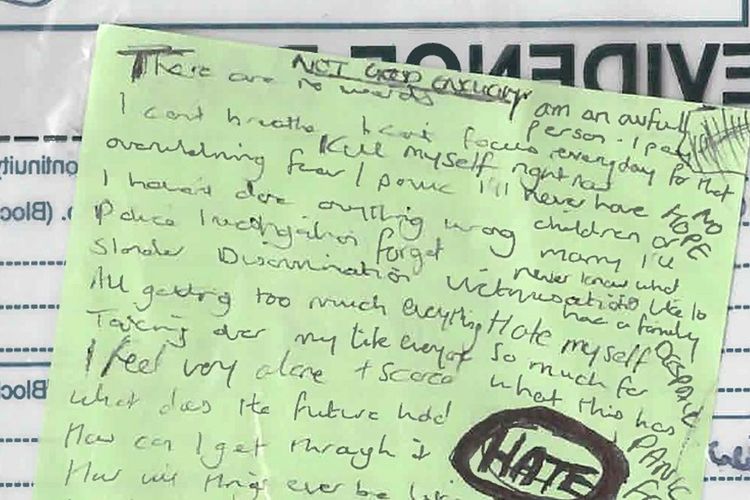 EVIDENCE
NOT GOOD ENOUGH
There are no words
I am an awful person. I pay
I can't breathe I can't focus everyday for that
Kill myself right now
overwhelming fear / panic I'll never have NO HOPE
I haven't done anything wrong children or
marry I'll
Police Investigation forget never know what
Slander Discrimination Victimisation like to
have a family
All getting too much everything Hate myself DESPAIR
Taking over my life so much for
what this has
I feel very alone + scared PANIC
What does the future hold
How can I get through it
HATE
How will things ever be
ontinuity
(Bloc
Bloc